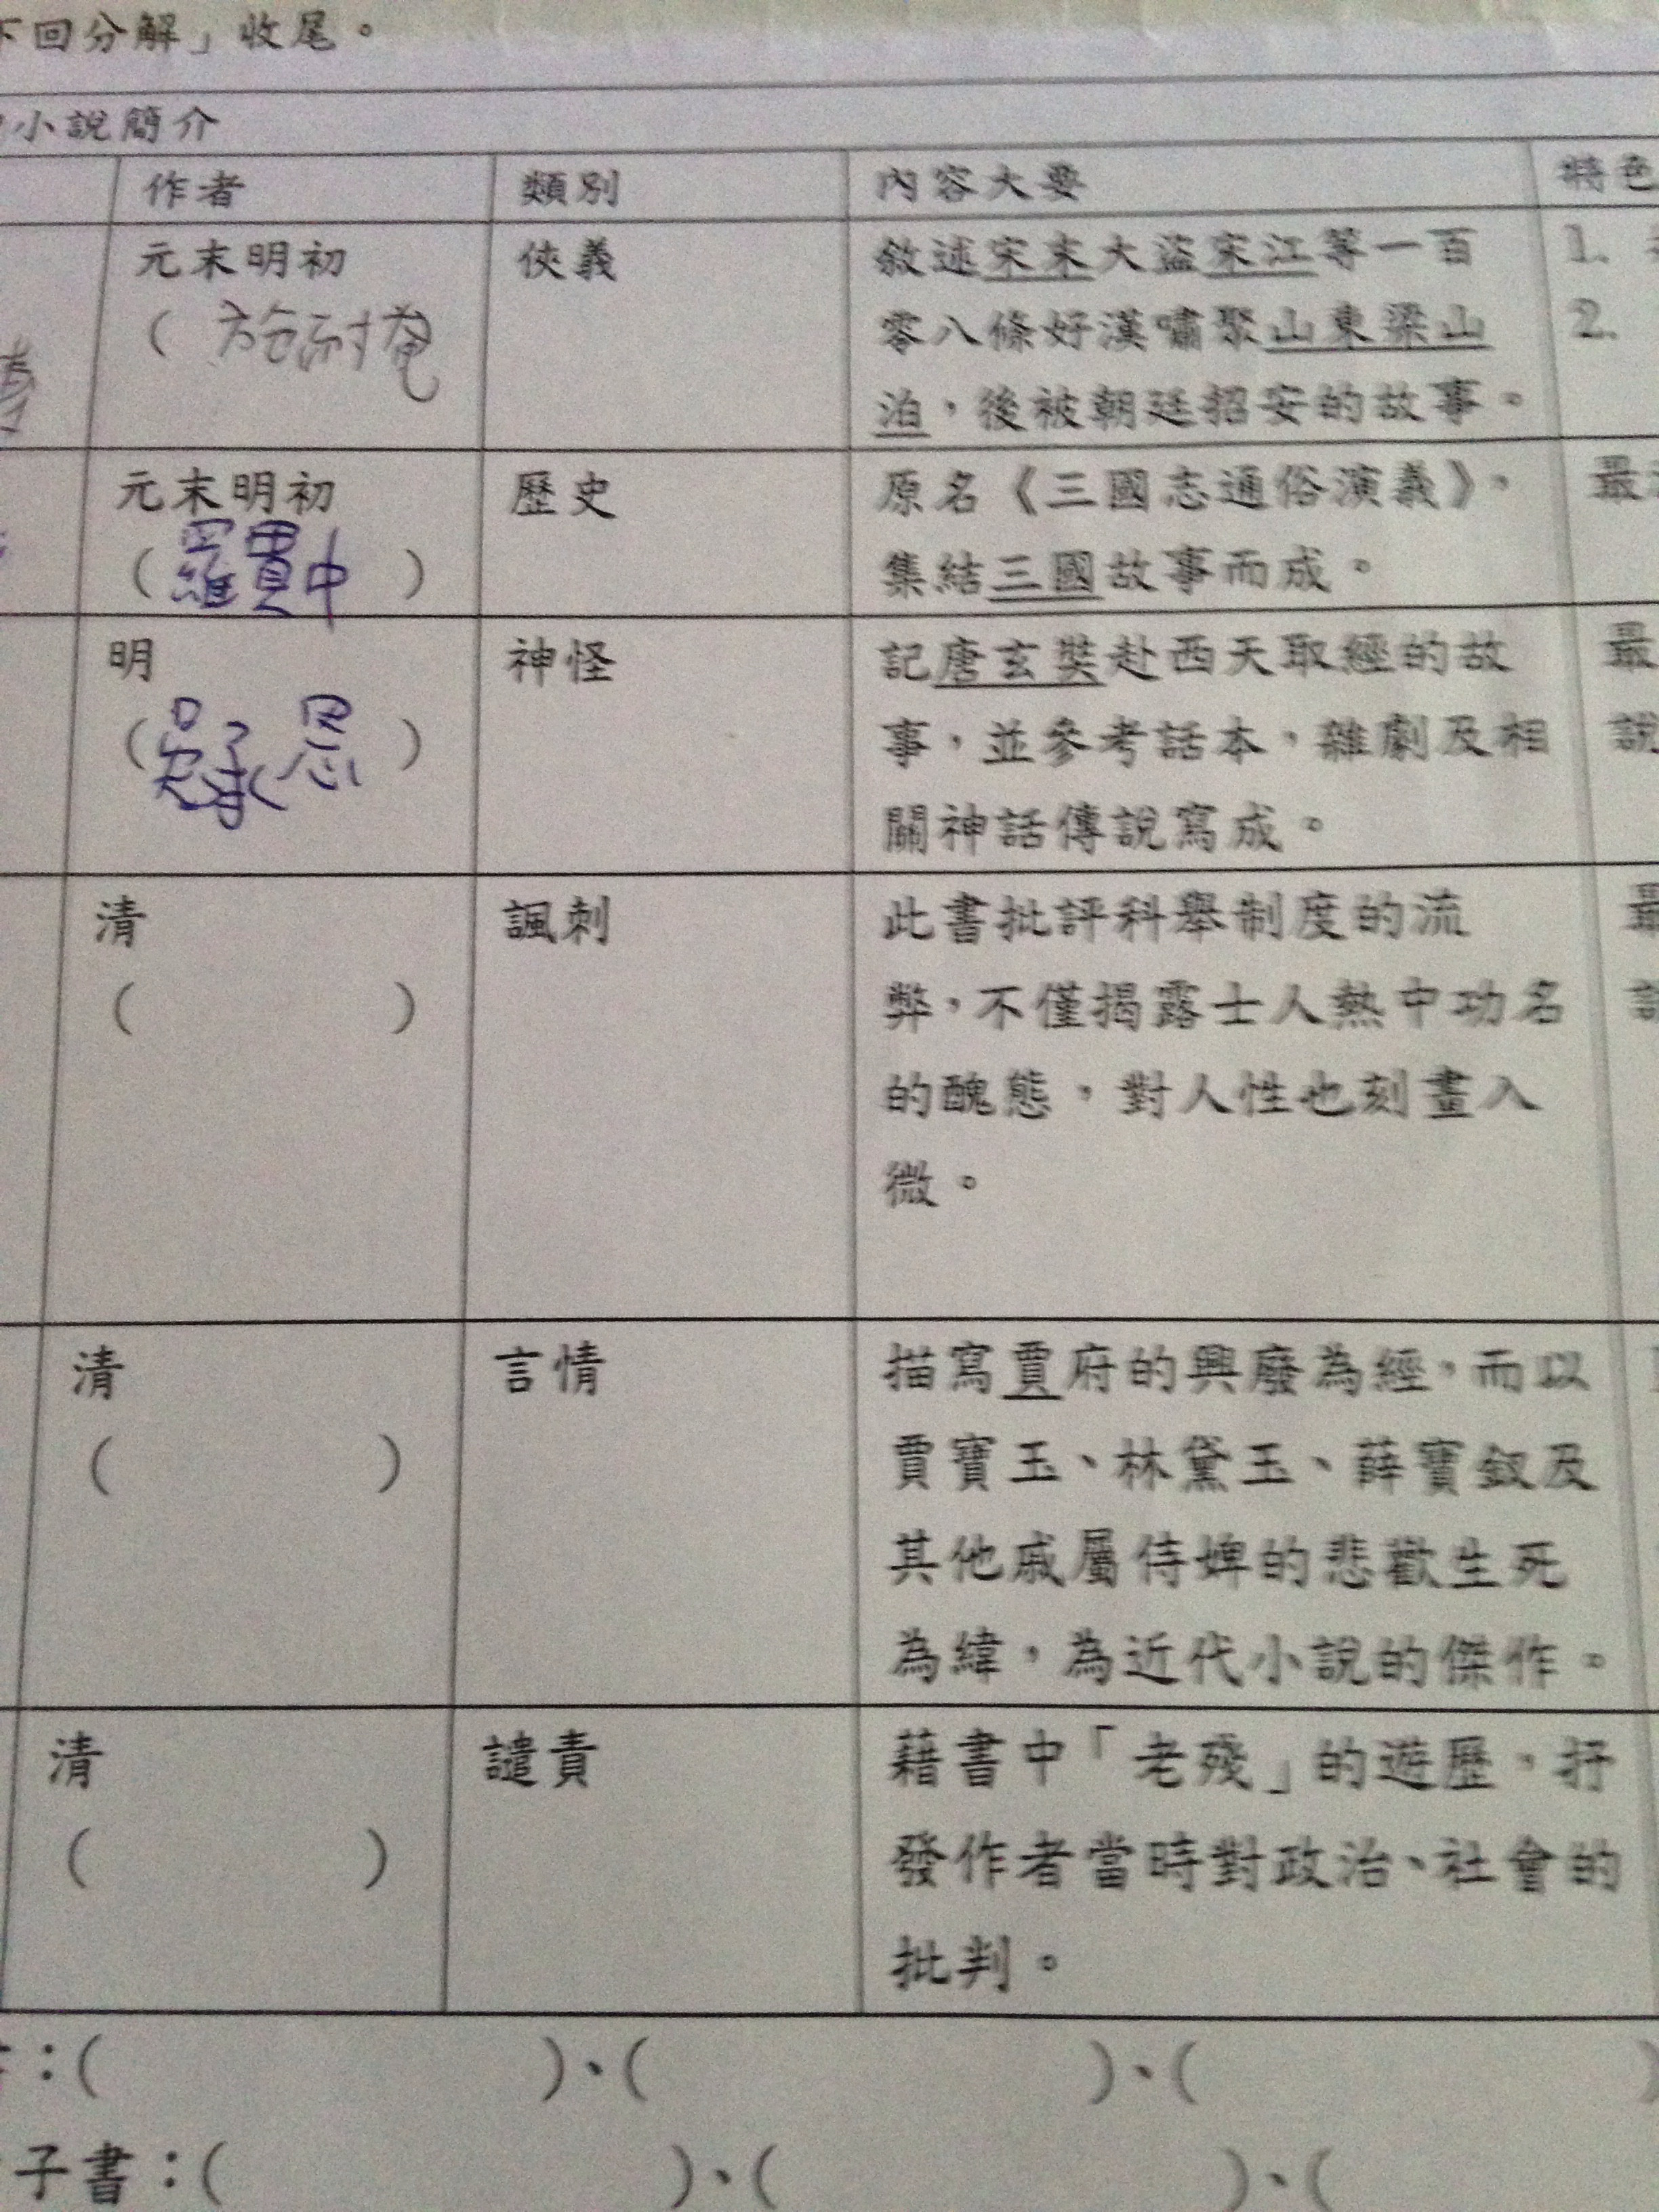 下回分解」收尾。
小說簡介
作者 類別 內容大要 特色
元末明初 俠義 敘述宋末大盜宋江等一百 1.
( 施耐庵 零八條好漢嘯聚山東梁山 2.
泊，後被朝廷招安的故事。
元末明初 歷史 原名《三國志通俗演義》， 最
( 羅貫中 ) 集結三國故事而成。
明 神怪 記唐玄奘赴西天取經的故 最
( 吳承恩 ) 事，並參考話本，雜劇及相 說
關神話傳說寫成。
清 諷刺 此書批評科舉制度的流 最
( ) 弊，不僅揭露士人熱中功名
的醜態，對人性也刻畫入
微。
清 言情 描寫賈府的興廢為經，而以
( ) 賈寶玉、林黛玉、薛寶釵及
其他戚屬侍婢的悲歡生死
為緯，為近代小說的傑作。
清 譴責 藉書中「老殘」的遊歷，抒
( ) 發作者當時對政治、社會的
批判。
：( )、( )、( )
子書：( )、( )、(